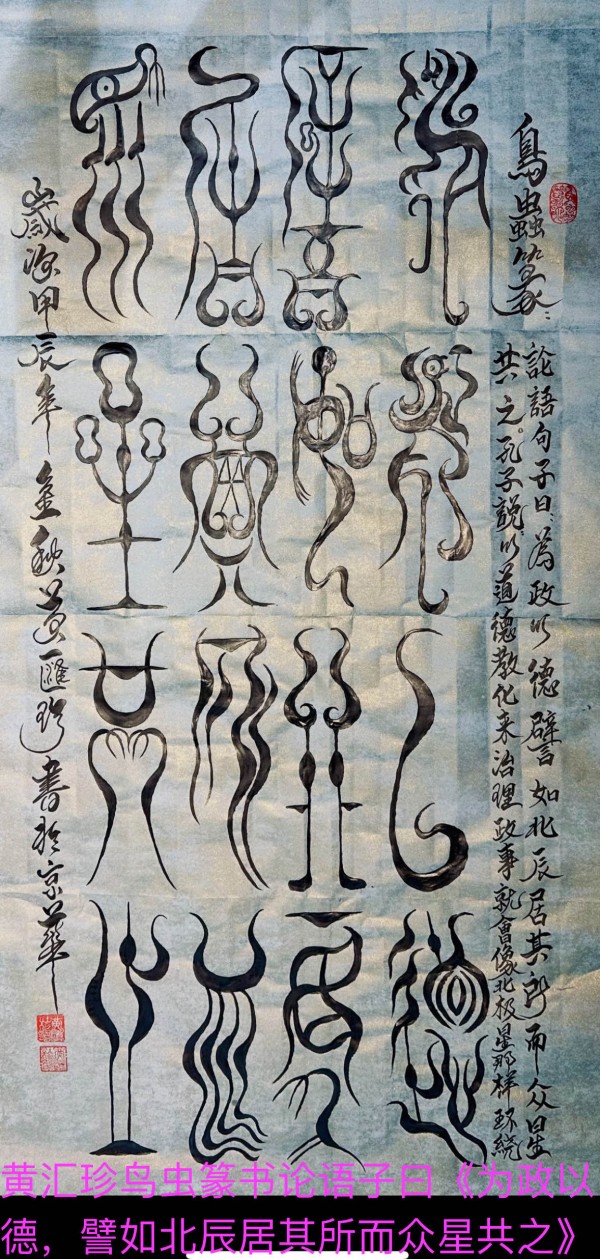 鳥蟲篆：
論語句子曰：為政以德譬如北辰居其所而众星
共之。孔子説：以道德教化来治理政事就會像北极星那样环绕
為政以德
譬如北辰
居其所而
眾星共之
歲次甲辰年金秋黃匯珍書於京華
黄汇珍鸟虫篆书论语子曰《为政以
德，譬如北辰居其所而众星共之》